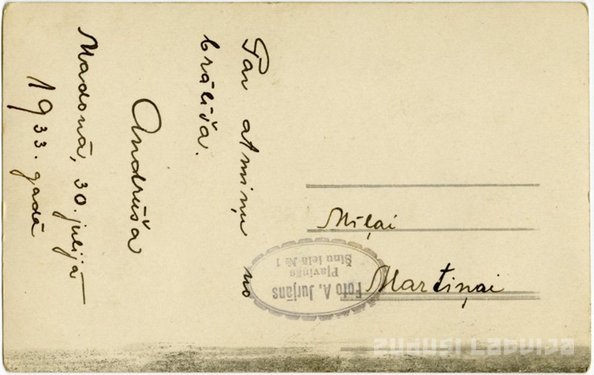 Par atmiņu no
brālīša.
Andrūša
Madonā, 30. jūlijā
1933. gadā
Mīļai
Martiņai
Foto A. Jurjāns
Pļaviņās
Stņu ielā № 1
zudusi Latvija